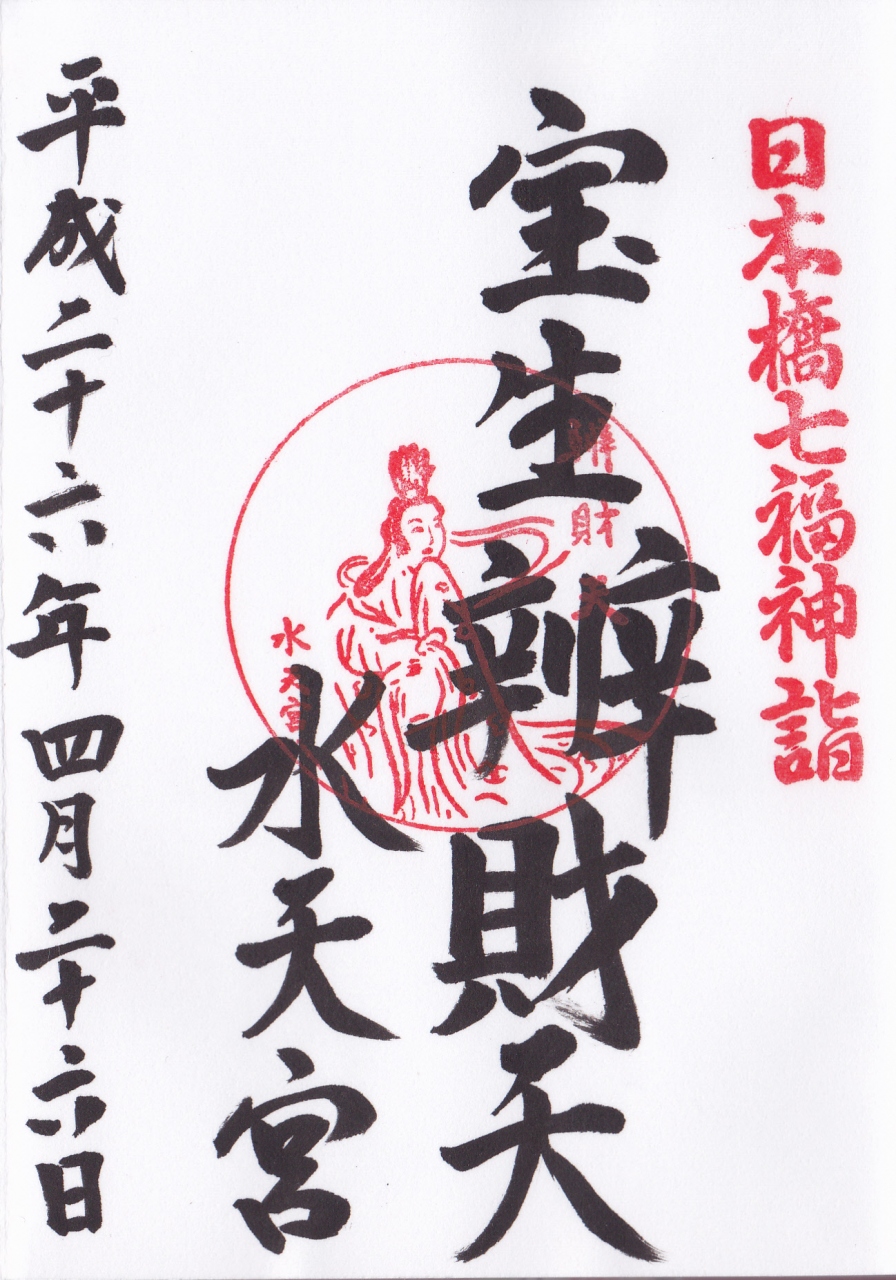 日本橋七福神詣
宝生辨財天
辨財天
水天宮
水天宮
平成二十六年四月二十六日